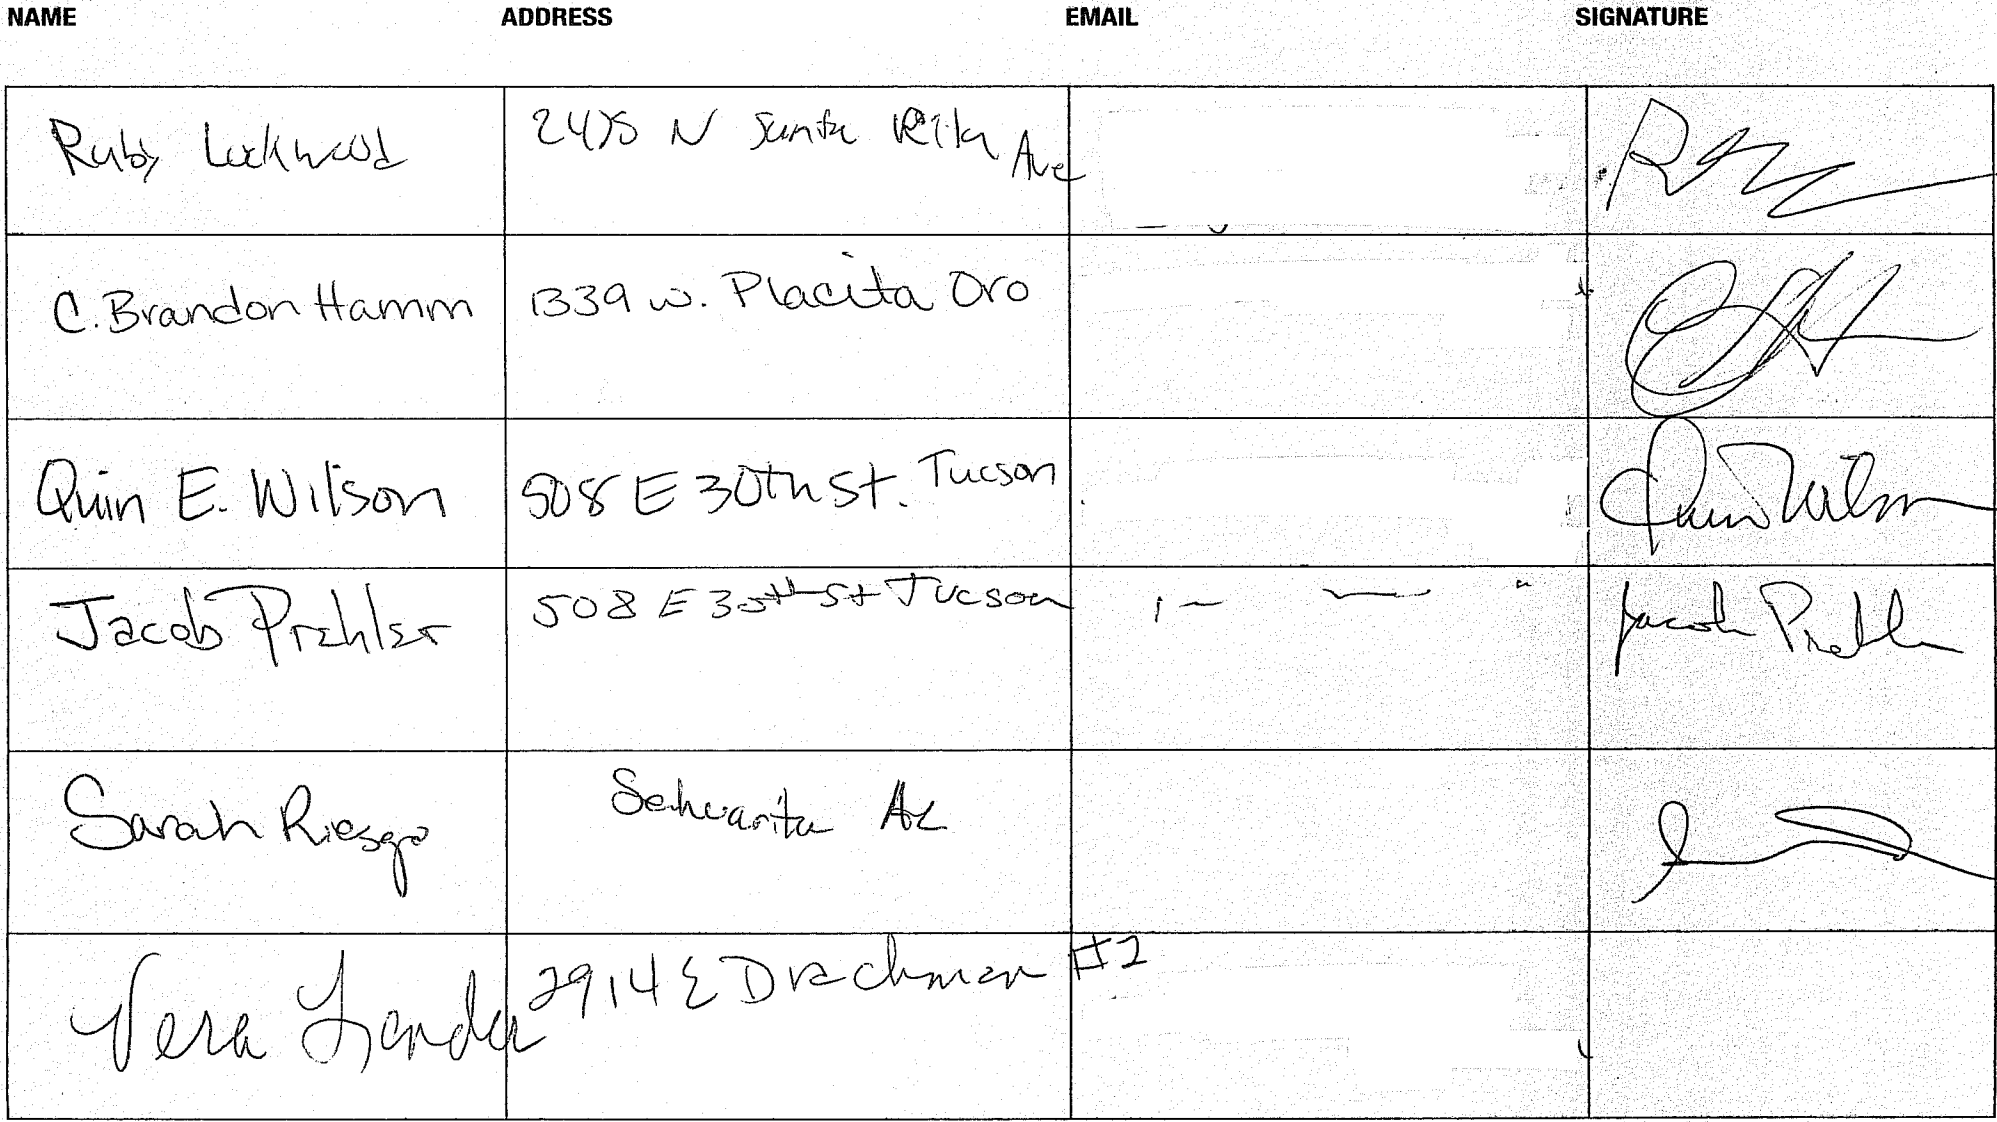 NAME ADDRESS EMAIL SIGNATURE
Ruby Lockwood 2475 N Santa Rita Ave
C. Brandon Hamm 1339 W. Placita Oro
Quin E. Wilson 508 E 30th St. Tucson Quin Wilson
Jacob Prehler 508 E 30th St Tucson Jacob Prehler
Sarah Riesgo Sahuarita Az
Vera 2914 E Drachman #2